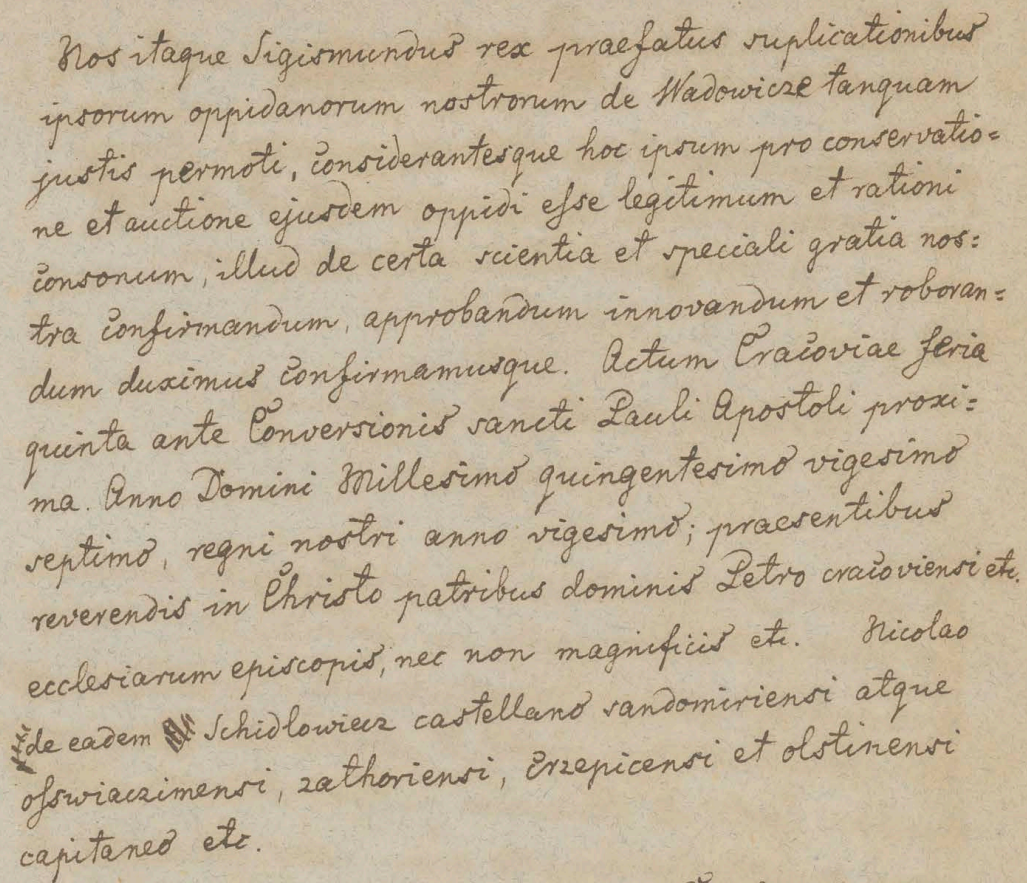 Nos itaque Sigismundus rex praefatus suplicationibus
ipsorum oppidanorum nostrorum de Wadowicze tanquam
justis permoti, considerantesque hoc ipsum pro conservatio=
ne et auctione ejusdem oppidi esse legitimum et rationi
consonum, illud de certa scientia et speciali gratia nos=
tra confirmandum, approbandum innovandum et roboran=
dum duximus confirmamusque. Actum Cracoviae feria
quinta ante Conversionis sancti Pauli Apostoli proxi=
ma. Anno Domini Millesimo quingentesimo vigesimo
septimo, regni nostri anno vigesimo; praesentibus
reverendis in Christo patribus dominis Petro cracoviensi etc.
ecclesiarum episcopis, nec non magnificis etc. Nicolao
de eadem Schidlowiecz castellano sandomiriensi atque
osswiaczimensi, zathoriensi, Crzepicensi et olstinensi
capitaneo etc.